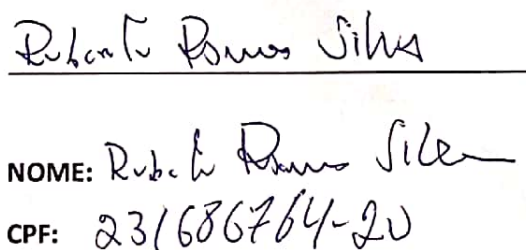 Rubento Ramos Silva
NOME: Rubento Ramos Silva
CPF: 231686764-20